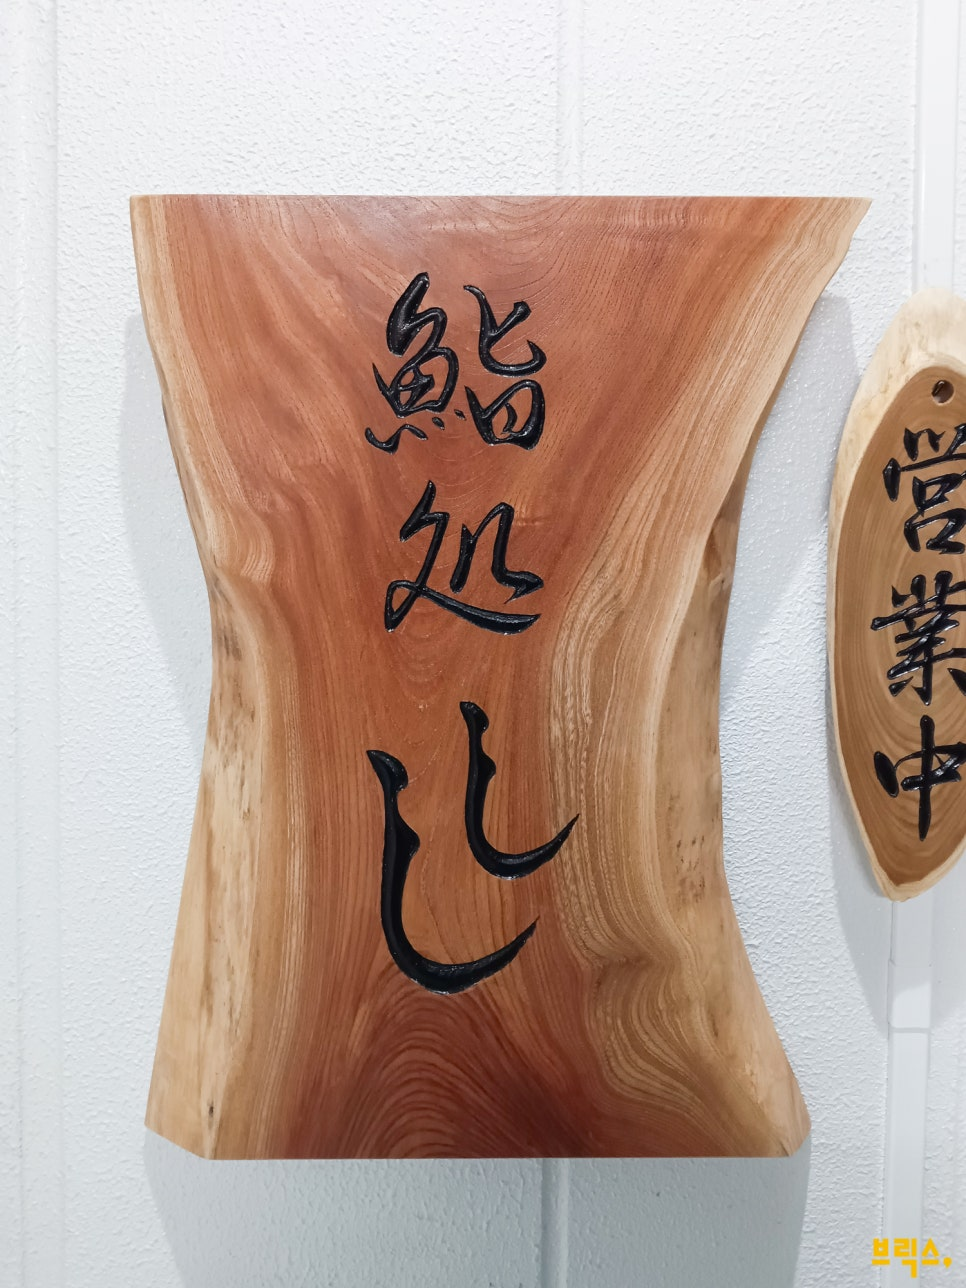 鮨処
しし
営業中
브릭스,